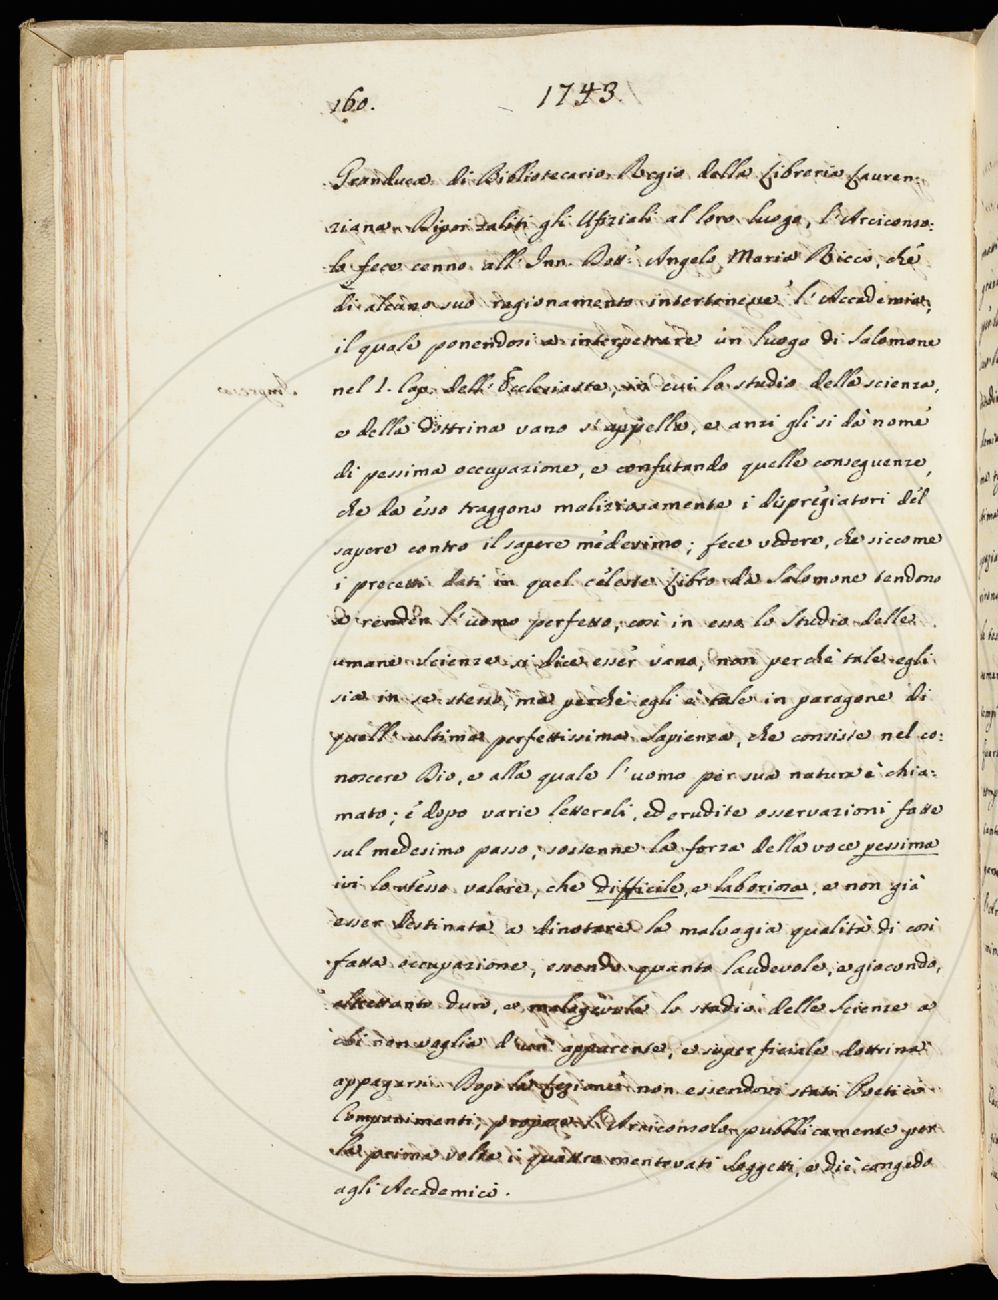 160.
1743.
Granduca di Bibliotecario Regio della Libreria Lauren:
ziana. Dipoi saliti gli Ufiziali al loro luogo, l'Arciconso:
lo fece cenno all' Inn. Dott.r Angelo Maria Ricci, che
di alcuno suo ragionamento intertenesse l'Accademia,
il quale ponendosi a interpetrare un luogo di Salomone
nel 1. Cap. dell' Ecclesiaste, in cui lo studio della scienza,
e della dottrina vano si appella, e anzi gli si dà nome
di pessima occupazione, e confutando quelle conseguenze,
che da esso traggono maliziosamente i dispregiatori del
sapere contro il sapere medesimo; fece vedere, che siccome
i precetti dati in quel celeste Libro da Salomone tendono
a render l'uomo perfetto, così in esso lo Studio delle
umane scienze si dice esser vano, non perchè tale egli
sia in se stesso, ma perchè egli è tale in paragone di
quell' ultima perfettissima Sapienza, che consiste nel co:
noscere Dio, e alla quale l'uomo per sua natura è chia:
mato; e dopo varie letterali, ed erudite osservazioni fatte
sul medesimo passo, sostenne la forza della voce pessima
ivi lo stesso valere, che difficile, e laboriosa, e non già
esser destinata a dinotare la malvagia qualità di così
fatta occupazione, essendo quanto laudevole, e giocondo,
altrettanto duro, e malagevole lo studio delle Scienze a
chi non voglia d'un' apparente, e superficiale dottrina
appagarsi. Dopo la Lezione non essendovi stati Poetici
Componimenti, propose l'Arciconsolo pubblicamente per
la prima volta i quattro mentovati Soggetti, e diè congedo
agli Accademici.